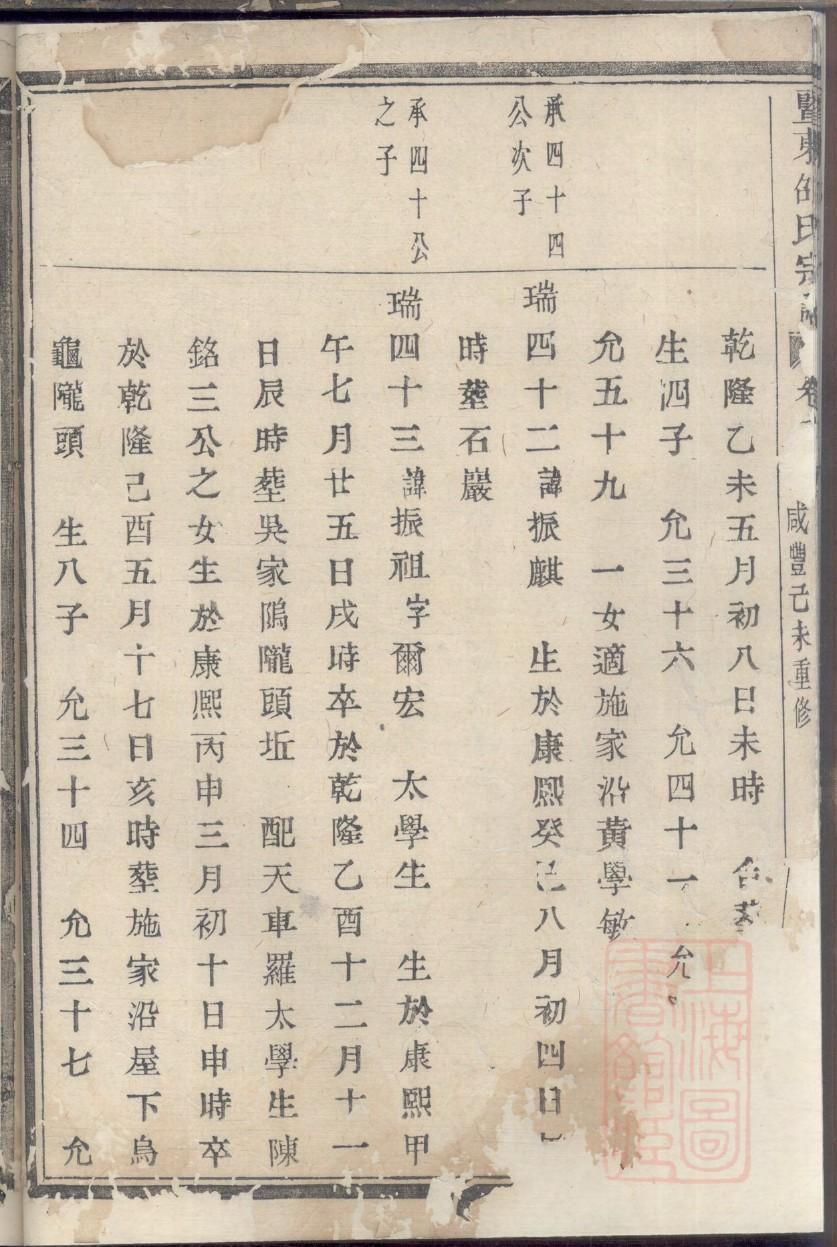 暨東邵氏宗譜 卷
咸豐己未重修
乾隆乙未五月初八日未時 合葬
生四子 允三十六 允四十一 允
允五十九 一女適施家沿黃學敏
承四十四
公次子
瑞四十二諱振麒 生於康熙癸巳八月初四日
時塟石巖
承四十公
之子
瑞四十三諱振祖字爾宏 太學生 生於康熙甲
午七月廿五日戌時卒於乾隆乙酉十二月十一
日辰時塟吳家隖隴頭坵 配天車羅太學生陳
銘三公之女生於康熙丙申三月初十日申時卒
於乾隆己酉五月十七日亥時塟施家沿屋下烏
龜隴頭 生八子 允三十四 允三十七 允
上海圖
書館藏